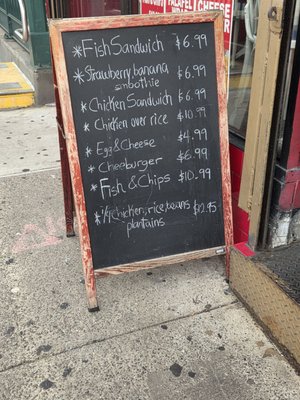 FALAFEL
CHEESE
*Fish Sandwich $6.99
*Strawberry, banana
smoothie $6.99
*Chicken Sandwich $6.99
*Chicken over rice $10.99
*Egg & Cheese $4.99
*Cheeburger $6.99
*Fish & Chips $10.99
*¼ chicken, rice, beans
plantains $12.95